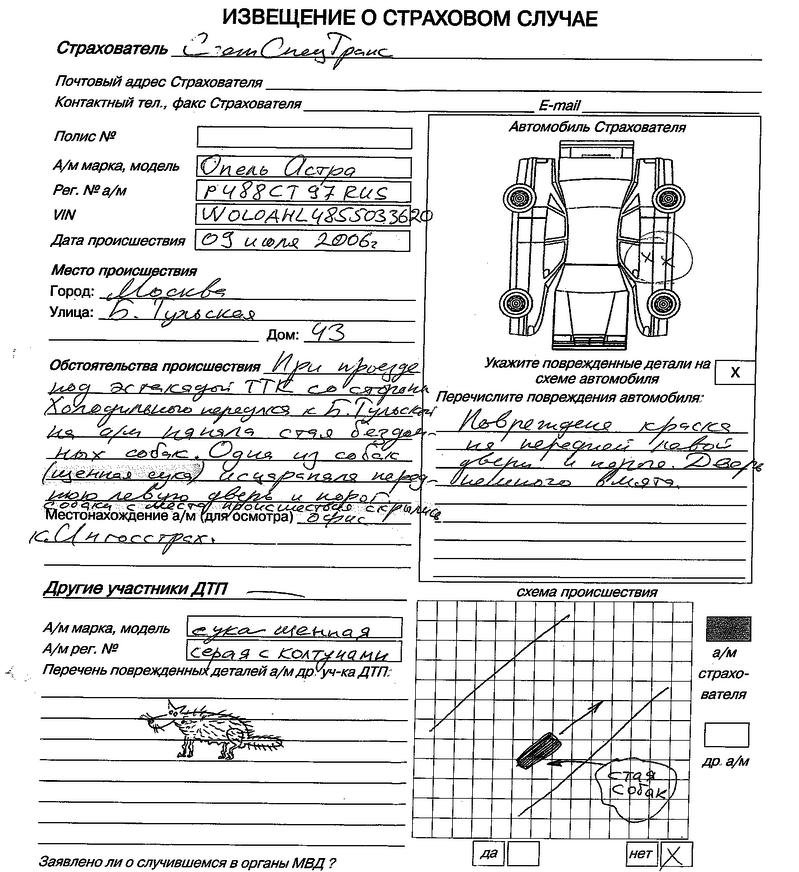 ИЗВЕЩЕНИЕ О СТРАХОВОМ СЛУЧАЕ
Страхователь СпецТранс
Почтовый адрес Страхователя
Контактный тел., факс Страхователя E-mail
Полис №
А/м марка, модель Опель Астра
Рег. № а/м Р488СТ 97 RUS
VIN W0L0AHL4855033620
Дата происшествия 09 июля 2006г
Место происшествия
Город: Москва
Улица: Б. Тульская
Дом: 43
Обстоятельства происшествия При проезде
под эстакадой ТТК со стороны
Холодильного переулка к Б. Тульской
на а/м напала стая бездом-
ных собак. Одна из собак
(щенная сука) исцарапала перед-
нюю левую дверь и порог.
собаки с места происшествия скрылись
Местонахождение а/м (для осмотра) офис
к. Ингосстрах.
Автомобиль Страхователя
x x
Укажите поврежденные детали на
схеме автомобиля
X
Перечислите повреждения автомобиля:
Повреждена краска
на передней левой
двери и пороге. Дверь
немного вмята.
Другие участники ДТП —
А/м марка, модель сука щенная
А/м рег. № серая с колтунами
Перечень поврежденных деталей а/м др. уч-ка ДТП:
схема происшествия
стая
собак
а/м
страхо-
вателя
др. а/м
Заявлено ли о случившемся в органы МВД ?
да
нет X